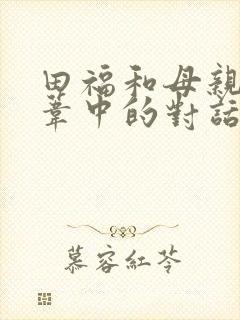 田福和母親
葦中的對話
慕容紅苓